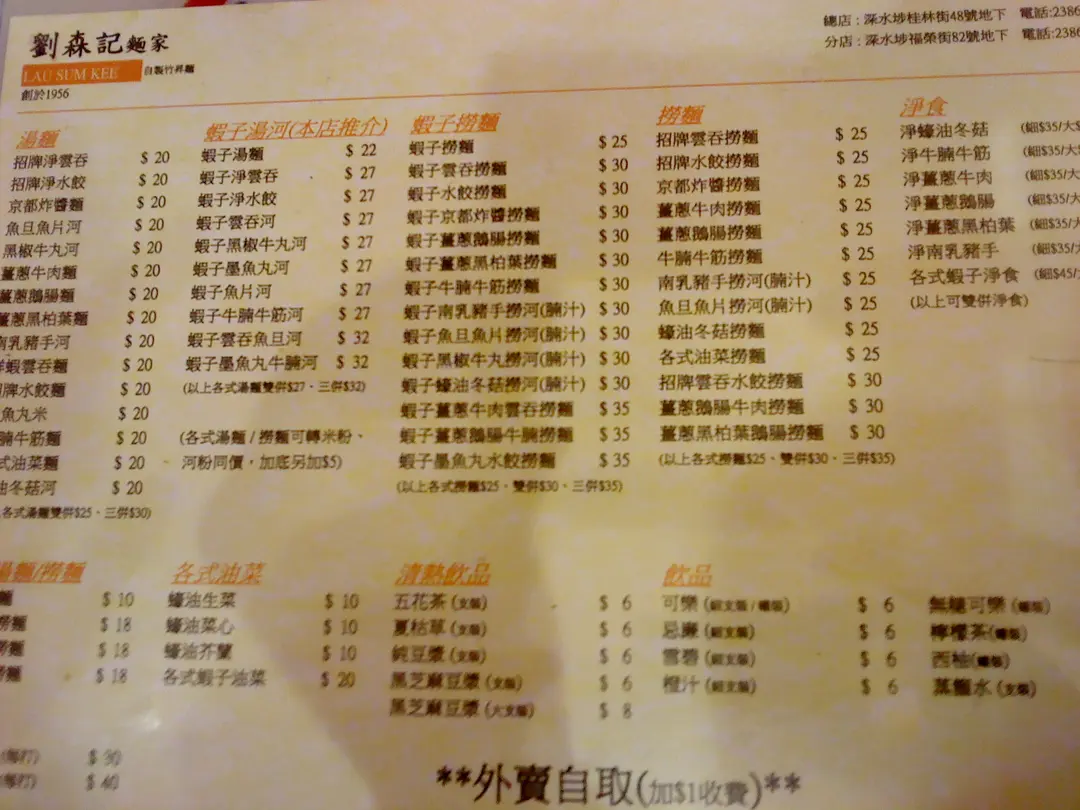 劉森記麵家
LAU SUM KEE 自製竹昇麵
創於1956
總店：深水埗桂林街48號地下 電話:2386
分店：深水埗福榮街82號地下 電話:2386
湯麵
招牌淨雲吞 $ 20
招牌淨水餃 $ 20
京都炸醬麵 $ 20
魚旦魚片河 $ 20
黑椒牛丸河 $ 20
薑蔥牛肉麵 $ 20
薑蔥鵝腸麵 $ 20
薑蔥黑柏葉麵 $ 20
南乳豬手河 $ 20
蝦雲吞麵 $ 20
牌水餃麵 $ 20
魚丸米 $ 20
腩牛筋麵 $ 20
式油菜麵 $ 20
油冬菇河 $ 20
各式湯麵雙併$25、三併$30)
蝦子湯河(本店推介)
蝦子湯麵 $ 22
蝦子淨雲吞 $ 27
蝦子淨水餃 $ 27
蝦子雲吞河 $ 27
蝦子黑椒牛丸河 $ 27
蝦子墨魚丸河 $ 27
蝦子魚片河 $ 27
蝦子牛腩牛筋河 $ 27
蝦子雲吞魚旦河 $ 32
蝦子墨魚丸牛腩河 $ 32
(以上各式湯麵雙併$27、三併$32)
(各式湯麵 / 撈麵可轉米粉、
河粉同價，加底另加$5)
蝦子撈麵
蝦子撈麵 $ 25
蝦子雲吞撈麵 $ 30
蝦子水餃撈麵 $ 30
蝦子京都炸醬撈麵 $ 30
蝦子薑蔥鵝腸撈麵 $ 30
蝦子薑蔥黑柏葉撈麵 $ 30
蝦子牛腩牛筋撈麵 $ 30
蝦子南乳豬手撈河(腩汁) $ 30
蝦子魚旦魚片撈河(腩汁) $ 30
蝦子黑椒牛丸撈河(腩汁) $ 30
蝦子蠔油冬菇撈河(腩汁) $ 30
蝦子薑蔥牛肉雲吞撈麵 $ 35
蝦子薑蔥鵝腸牛腩撈麵 $ 35
蝦子墨魚丸水餃撈麵 $ 35
(以上各式撈麵$25、雙併$30、三併$35)
撈麵
招牌雲吞撈麵 $ 25
招牌水餃撈麵 $ 25
京都炸醬撈麵 $ 25
薑蔥牛肉撈麵 $ 25
薑蔥鵝腸撈麵 $ 25
牛腩牛筋撈麵 $ 25
南乳豬手撈河(腩汁) $ 25
魚旦魚片撈河(腩汁) $ 25
蠔油冬菇撈麵 $ 25
各式油菜撈麵 $ 25
招牌雲吞水餃撈麵 $ 30
薑蔥鵝腸牛肉撈麵 $ 30
薑蔥黑柏葉鵝腸撈麵 $ 30
(以上各式撈麵$25、雙併$30、三併$35)
淨食
淨蠔油冬菇 (細$35/大$
淨牛腩牛筋 (細$35/大
淨薑蔥牛肉 (細$35/大
淨薑蔥鵝腸 (細$35/大
淨薑蔥黑柏葉 (細$35/大
淨南乳豬手 (細$35/大
各式蝦子淨食 (細$45/
(以上可雙併淨食)
湯麵/撈麵
麵 $ 10
撈麵 $ 18
撈麵 $ 18
撈麵 $ 18
(每打) $ 30
(每打) $ 40
各式油菜
蠔油生菜 $ 10
蠔油菜心 $ 10
蠔油芥蘭 $ 10
各式蝦子油菜 $ 20
清熱飲品
五花茶 (支裝) $ 6
夏枯草 (支裝) $ 6
純豆漿 (支裝) $ 6
黑芝麻豆漿 (支裝) $ 6
黑芝麻豆漿 (大支裝) $ 8
飲品
可樂 (細支裝 / 罐裝) $ 6
忌廉 (細支裝) $ 6
雪碧 (細支裝) $ 6
橙汁 (細支裝) $ 6
無糖可樂 (罐裝)
檸檬茶(罐裝)
西柚(罐裝)
蒸餾水 (支裝)
**外賣自取(加$1收費)**